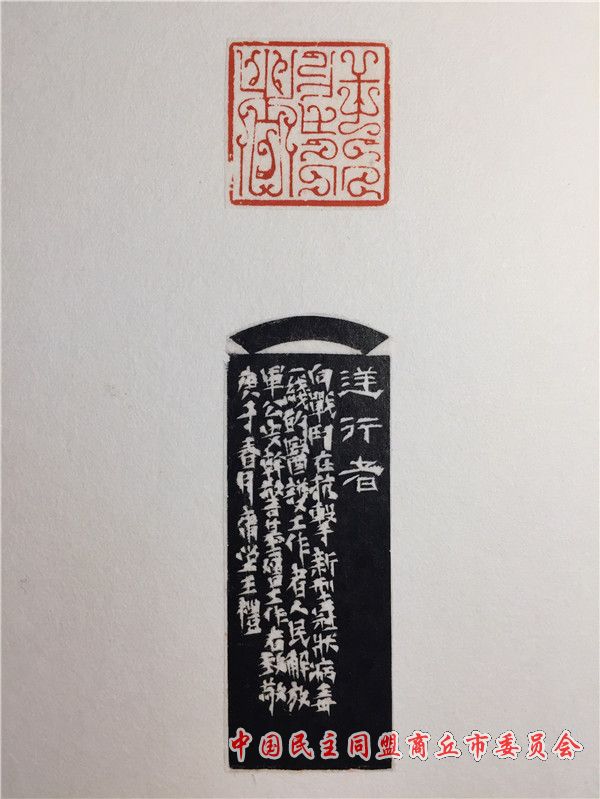 逆行者
向戰鬥在抗擊新型冠狀病毒
一綫的醫護工作者人民解放
軍公安幹警基層工作者致敬
庚子春月庸堂王禮
中国民主同盟商丘市委员会